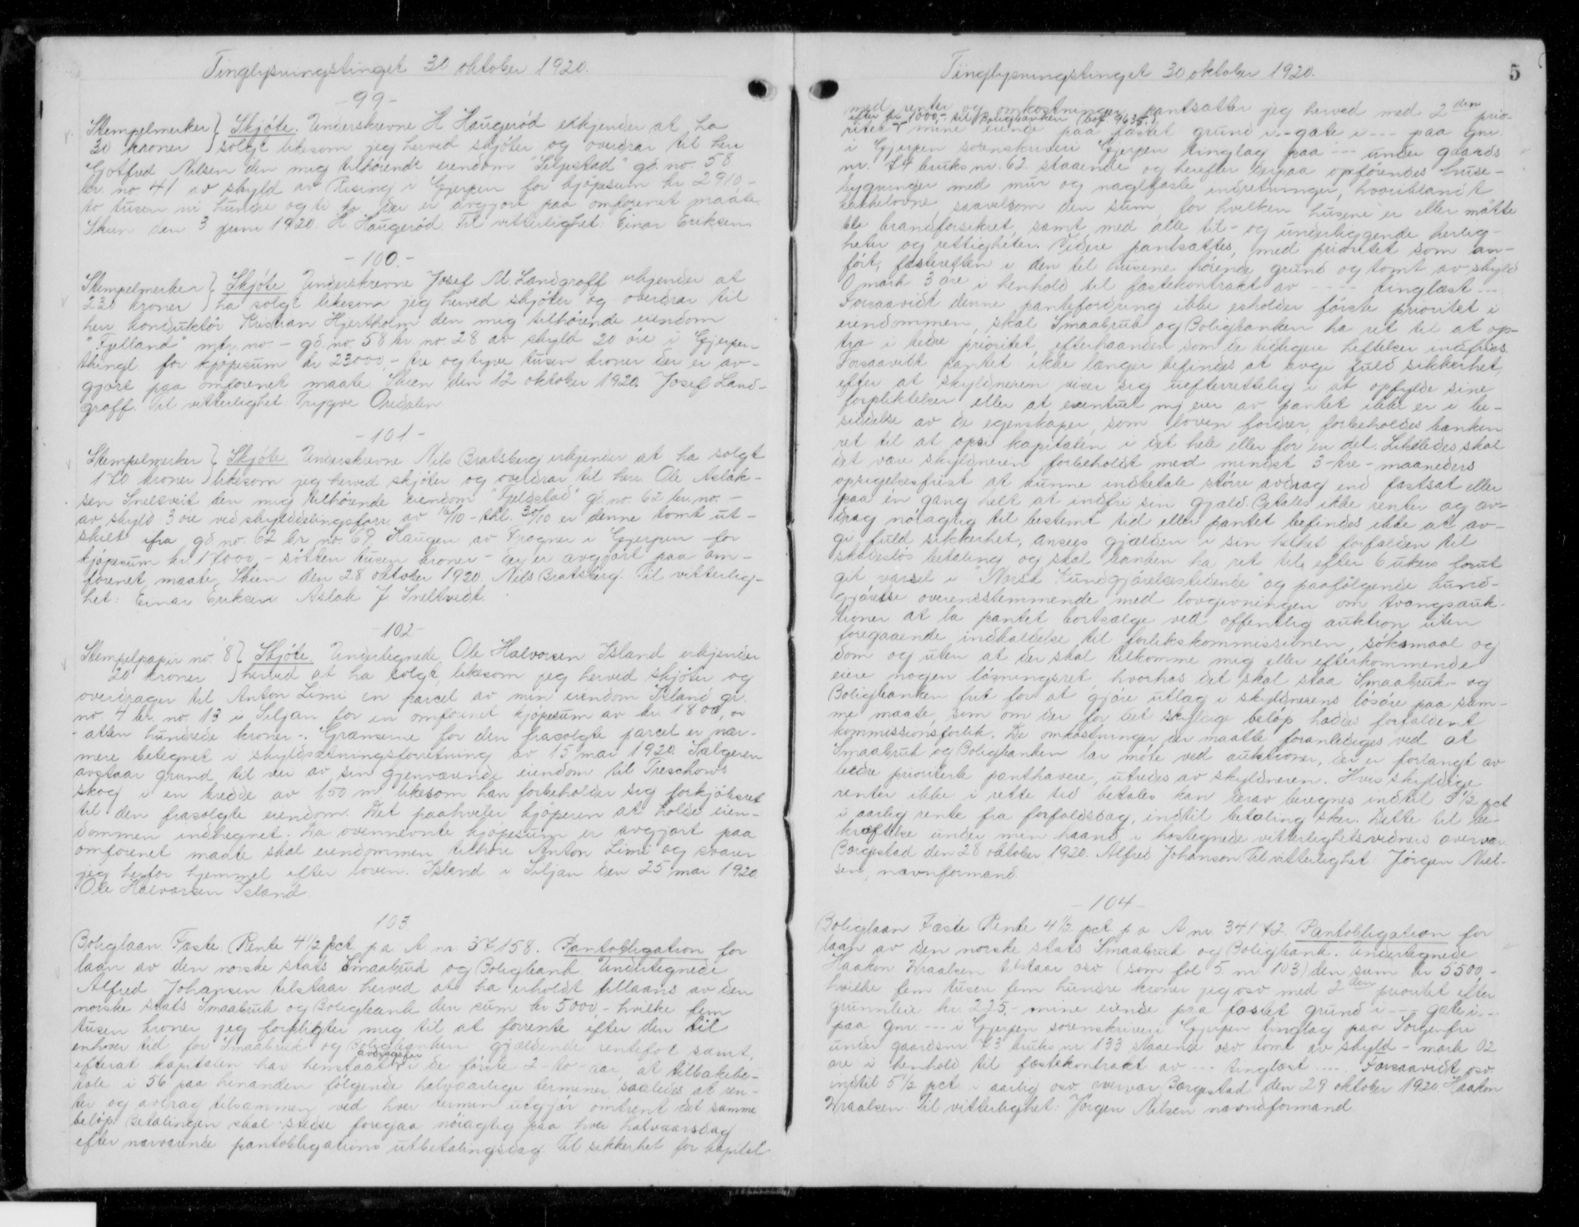 Tinglysningstinget 30 oktober 1920.
- 99 -
Stempelmerker } Skjøte. Underskrevne H Haugerød erkjender at ha
30 kroner } solgt likesom jeg herved skjøter og overdrar til herr
Gotfred Nilsen den mig tilhørende eiendom gd. no. 58
br. no 41 av skyld av Rising i Gjerpen for kjøpesum kr 2910,-
to tusen ni hundre og ti kr der er avgjort paa omforenet maate.
Skien den 3 juni 1920. H Haugerød. Til vitterlighet: Einar Eriksen.
- 100. -
Stempelmerker } Skjøte Underskrevne Josef M Landgraff erkjender at
230 kroner } ha solgt likesom jeg herved skjøter og overdrar til
herr konduktør Kristian Hjertholm den mig tilhørende eiendom
"Fjelland" mtr. no. - gd. no. 58 br. no. 28 av skyld 20 øre i Gjerpen
thingl for kjøpesum kr 23000,- tre og tyve tusen kroner der er av-
gjort paa omforenet maate Skien den 12 oktober 1920. Josef Land-
graff. Til vitterlighet Trygve
- 101 -
Stempelmerker } Skjøte Underskrevne Nils Bratsberg erkjender at ha solgt
170 kroner } likesom jeg herved skjøter og overdrar til herr Ole Aslak-
sen Sneltvedt den mig tilhørende eiendom gd. no. 62 br. no. -
av skyld 3 øre ved skylddelingsforr. av 16/10 - thl. 30/10 er denne tomt ut-
skilt fra gd no. 62 br no. 69 Haugen av Kragnes i Gjerpen for
kjøpesum kr. 17000,- sytten tusen kroner - der er avgjort paa om-
forenet maate Skien den 28 oktober 1920. Nils Bratsberg. Til vitterlig-
het: Einar Eriksen Aslak J Sneltvedt.
- 102 -
Stempelpapir no 8 } Skjøte Undertegnede Ole Halvorsen Island erkjender
20 kroner } herved at ha solgt likesom jeg herved skjøter og
overdrager til Anton Limi en parcel av min eiendom Island gr.
no. 4 br. no. 13 i Siljan for en omforenet kjøpesum av kr. 1800,00
- atten hundrede kroner -. Grænserne for den frasolgte parcel er nær-
mere betegnet i skyldsætningsforretning av 15 mai 1920. Sælgeren
avstaar grund til vei av sin gjenværende eiendom til Treschows
skog i en bredde av 1,50 m. likesom han forbeholder sig forkjøbsret
til den frasolgte eiendom. Det paahviler kjøperen at holde eien-
dommen indhegnet. Da ovennævnte kjøpesum er avgjort paa
omforenet maate skal eiendommen tilhøre Anton Limi og svarer
jeg herfor hjemmel efter loven. Island i Siljan den 25 mai 1920
Ole Halvorsen Island.
103
Boliglaan Faste Rente 4 1/2 pct p a A nr 37158. Pantobligation for
laan av den norske stats Smaabruk og Boligbank Undertegnede
Alfred Johansen tilstaar herved at ha erholdt tillaans av den
norske stats Smaabruk og Boligbank den sum kr 5000,- hvilke fem
tusen kroner jeg forpligter mig til at forrente efter den til
enhver tid for Smaabruk og Boligbanken gjældende rentefot samt,
efterat kapitalen har henstaat avdragsfri i de første 2 - to - aar, at tilbakebe-
tale i 56 paa hinanden følgende halvaarlige terminer saaledes at ren-
ter og avdrag tilsammen ved hver termin utgjør omtrent det samme
beløp. Betalingen skal stedse foregaa nøiagtig paa hver halvaarsdag
efter nærværende pantobligations utbetalingsdag. Til sikkerhet for kapital
Tinglysningstinget 30 oktober 1920.
5
med renter og omkostninger pantsætter jeg herved med 2den prio-
ritet efter kr 1000,- til Boligbanken mine eiende paa fæstet grund i - gate i --- paa gnr
i Gjerpen sorenskriveri Gjerpen tinglag paa --- under gaards
nr. 79 bruks nr. 62 staaende og herefter derpaa opførendes huse-
bygninger med mur og naglfaste indretninger, hvoriblandt
kakkelovne saavelsom den sum for hvilken husene er eller maatte
bli brandforsikret, samt med alle til- og underliggende herlig-
heter og rettigheter. Videre pantsættes, med prioritet som an-
ført, fæsteretten i den til husene hørende grund og tomt av skyld
0 mark 3 øre i henhold til fæstekontrakt av ---- tinglæst ---
Forsaavidt denne pantefordring ikke erholder første prioritet i
eiendommen, skal Smaabruk og Boligbanken ha ret til at op-
tra i bedre prioritet, efterhaanden som de tidligere heftelser indfries.
Forsaavidt pantet ikke længer befindes at avgi fuld sikkerhet,
efter at skyldneren viser sig uefterrettelig i at opfylde sine
forpliktelser eller at eventuel ny eier av pantet ikke er i be-
siddelse av de egenskaper, som loven fordrer, forbeholdes banken
ret til at opsi kapitalen i det hele eller for en del. Likeledes skal
det være skyldneren forbeholdt med mindst 3-tre-maaneders
opsigelsesfrist at kunne indbetale større avdrag end fastsat eller
paa en gang helt at indfri sin gjæld. Betales ikke renter og av-
drag nøiagtig til bestemt tid eller pantet befindes ikke at av-
gi fuld sikkerhet, ansees gjælden i sin helhet forfalden til
skadesløs betaling og skal banken ha ret til, efter 6 ukers forut
git varsel i "Norsk Kundgjørelsestidende" og paafølgende kund-
gjørelse overensstemmende med lovgivningen om tvangsauk-
tioner at la pantet bortsælge ved offentlig auktion uten
foregaaende indkaldelse til forlikskommissionen, søksmaal og
dom og uten at der skal tilkomme mig eller efterkommende
eiere nogen løsningsret, hvorhos det skal staa Smaabruk- og
Boligbanken frit for at gjøre utlæg i skyldnerens løsøre paa sam-
me maate, som om der for det skyldige beløp hadde forfaldent
kommissionsforlik. De omkostninger der maatte foranlediges ved at
Smaabruk og Boligbanken lar møte ved auktioner, der er forlangt av
bedre prioriterte panthavere, utredes av skyldneren. Hvis skyldige
renter ikke i rette tid betales kan derav beregnes indtil 5 1/2 pct
i aarlig rente fra forfaldsdag, indtil betaling sker. Dette til be-
kræftelse under min haand, i hostegnede vitterlighetsvidners overvær.
Borgestad den 28 oktober 1920. Alfred Johansen Til vitterlighet: Jørgen Niel-
sen, navnformand.
- 104 -
Boliglaan Faste Rente 4 1/2 pct p a A nr 34172. Pantobligation for
laan av den norske stats Smaabruk og Boligbank. Undertegnede
Haakon Wraalsen tilstaar osv (som fol 5 nr 103) den sum kr 5500,-
hvilke fem tusen fem hundre kroner jeg osv med 2den prioritet efter
grunnleie kr. 225,- mine eiende paa fæstet grund i --- gate i ---
paa gnr --- i Gjerpen sorenskriveri Gjerpen tinglag paa Sorgenfri
under gaardsnr. 63 bruks nr. 133 staaende osv tomt av skyld - mark 02
øre i henhold til fæstekontrakt av --- tinglæst --- Forsaavidt osv
indtil 5 1/2 pct i aarlig osv overvær Borgestad den 29 oktober 1920 Haakon
Wraalsen Til vitterlighet: Jørgen Nilsen navnsformand